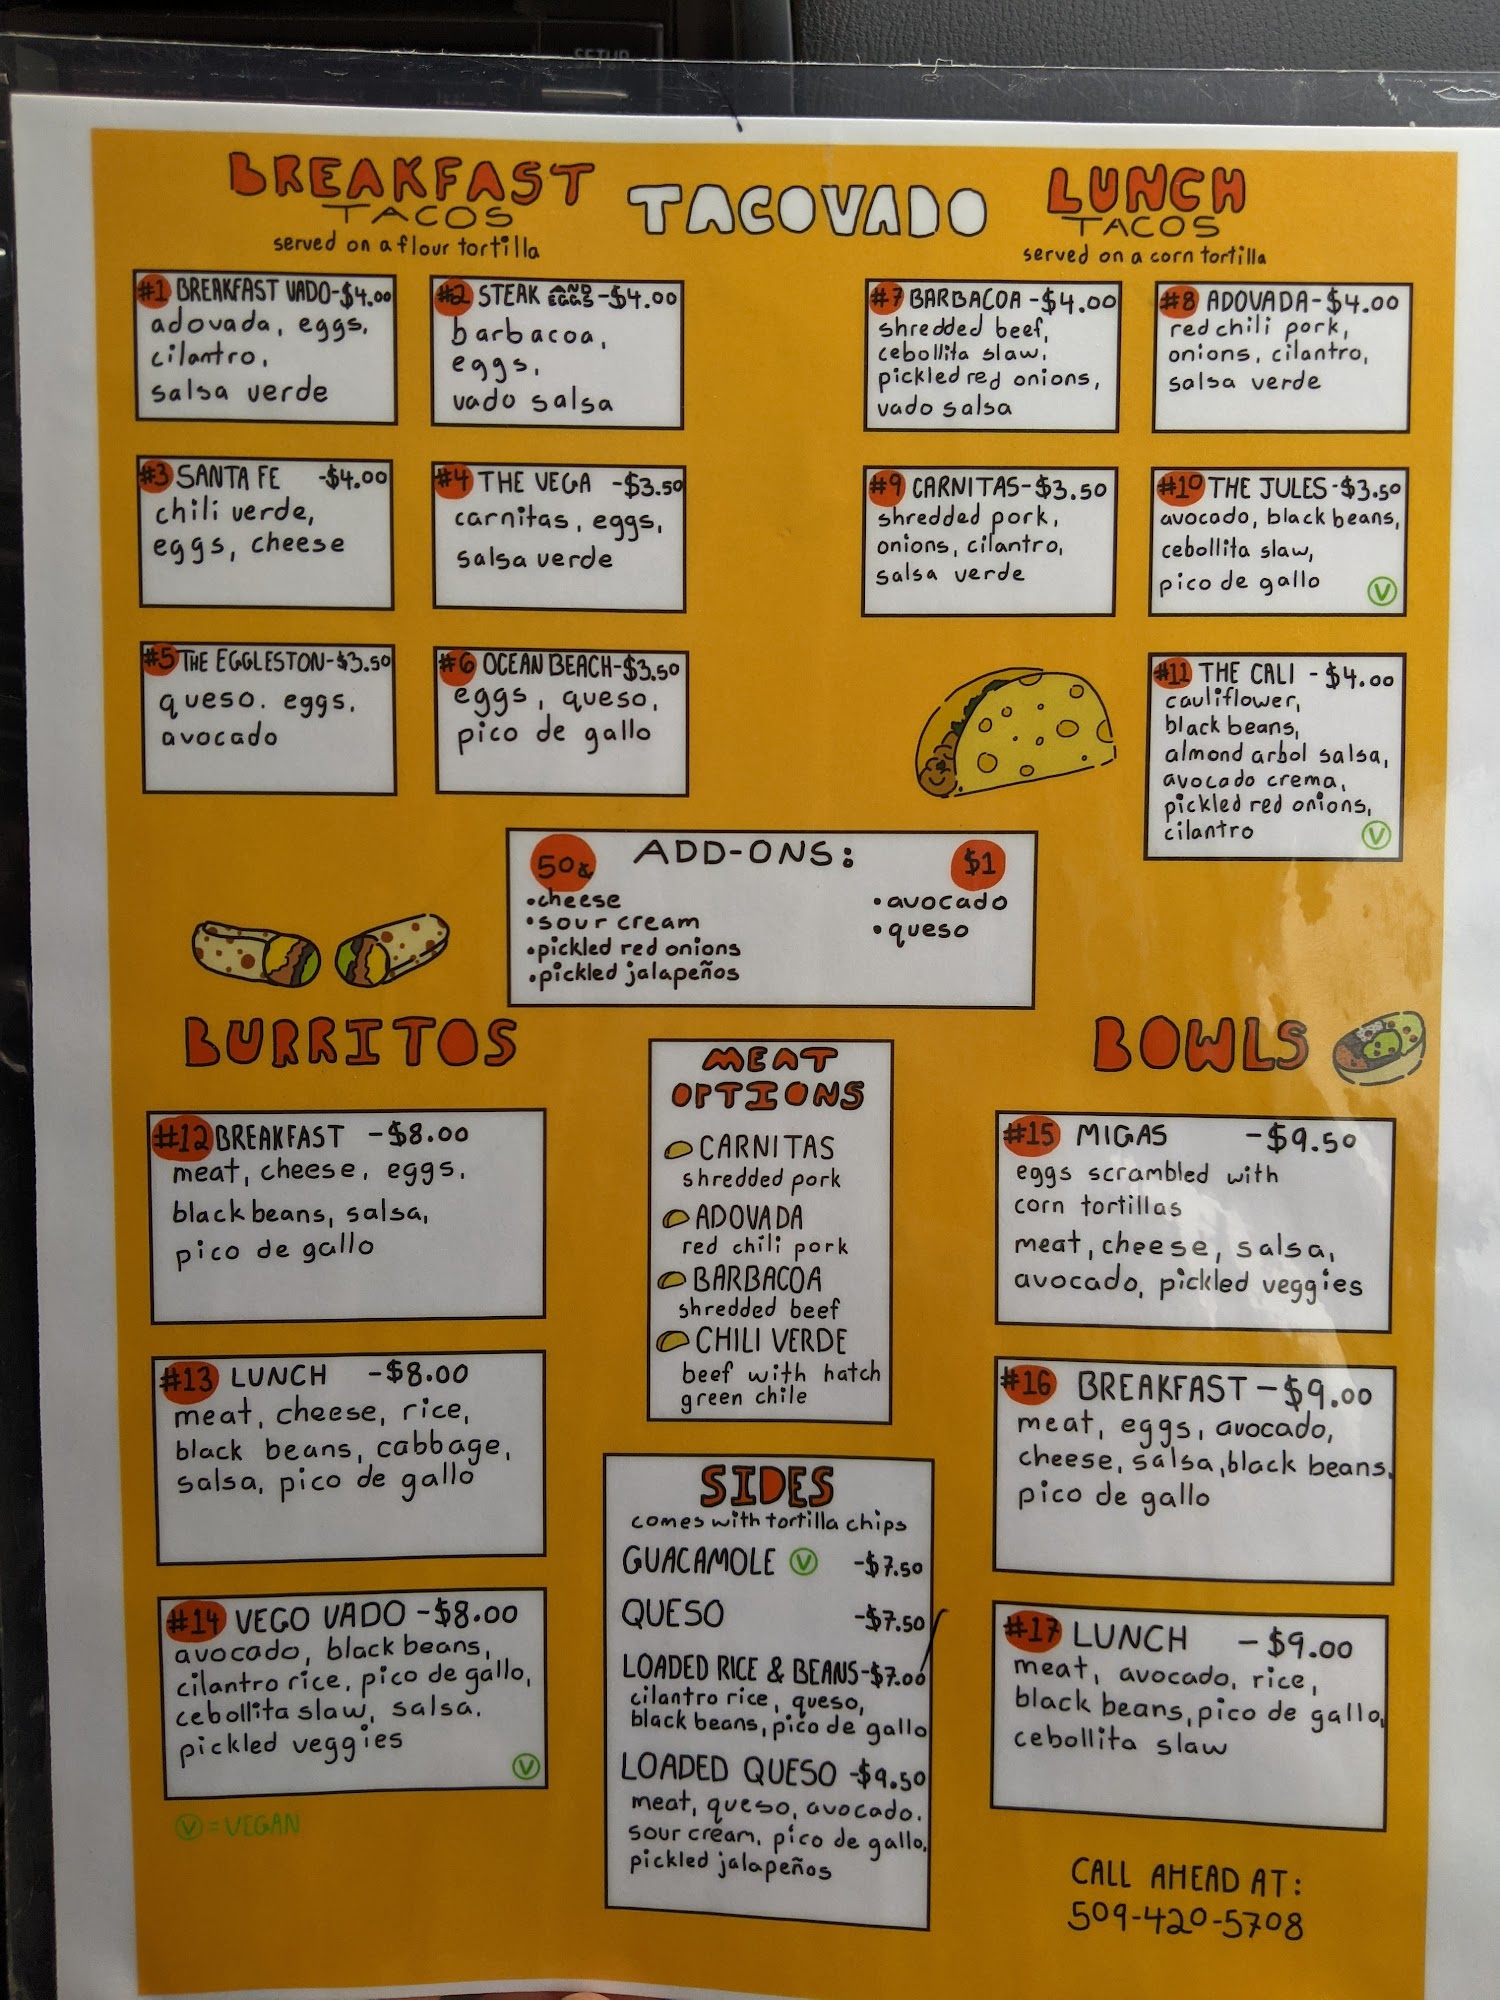 SETUP
BREAKFAST
TACOS
served on a flour tortilla
TACOVADO
LUNCH
TACOS
served on a corn tortilla
#1 BREAKFAST VADO-$4.00
adovada, eggs,
cilantro,
salsa verde
#2 STEAK AND EGGS -$4.00
barbacoa,
eggs,
vado salsa
#7 BARBACOA -$4.00
shredded beef,
cebollita slaw,
pickled red onions,
vado salsa
#8 ADOVADA-$4.00
red chili pork,
onions, cilantro,
salsa verde
#3 SANTA FE -$4.00
chili verde,
eggs, cheese
#4 THE VEGA -$3.50
carnitas, eggs,
salsa verde
#9 CARNITAS-$3.50
shredded pork,
onions, cilantro,
salsa verde
#10 THE JULES-$3.50
avocado, black beans,
cebollita slaw,
pico de gallo V
#5 THE EGGLESTON-$3.50
queso. eggs,
avocado
#6 OCEAN BEACH-$3.50
eggs, queso,
pico de gallo
#11 THE CALI -$4.00
cauliflower,
black beans,
almond arbol salsa,
avocado crema,
pickled red onions,
cilantro V
ADD-ONS:
50¢
•cheese
•sour cream
•pickled red onions
•pickled jalapeños
$1
•avocado
•queso
BURRITOS
#12 BREAKFAST -$8.00
meat, cheese, eggs,
black beans, salsa,
pico de gallo
#13 LUNCH -$8.00
meat, cheese, rice,
black beans, cabbage,
salsa, pico de gallo
#14 VEGO VADO -$8.00
avocado, black beans,
cilantro rice, pico de gallo,
cebollita slaw, salsa,
pickled veggies
V
V = VEGAN
MEAT
OPTIONS
CARNITAS
shredded pork
ADOVADA
red chili pork
BARBACOA
shredded beef
CHILI VERDE
beef with hatch
green chile
SIDES
comes with tortilla chips
GUACAMOLE V -$7.50
QUESO -$7.50
LOADED RICE & BEANS-$7.00
cilantro rice, queso,
black beans, pico de gallo
LOADED QUESO -$9.50
meat, queso, avocado,
sour cream, pico de gallo,
pickled jalapeños
BOWLS
#15 MIGAS -$9.50
eggs scrambled with
corn tortillas
meat, cheese, salsa,
avocado, pickled veggies
#16 BREAKFAST -$9.00
meat, eggs, avocado,
cheese, salsa, black beans,
pico de gallo
#17 LUNCH -$9.00
meat, avocado, rice,
black beans, pico de gallo,
cebollita slaw
CALL AHEAD AT:
509-420-5708